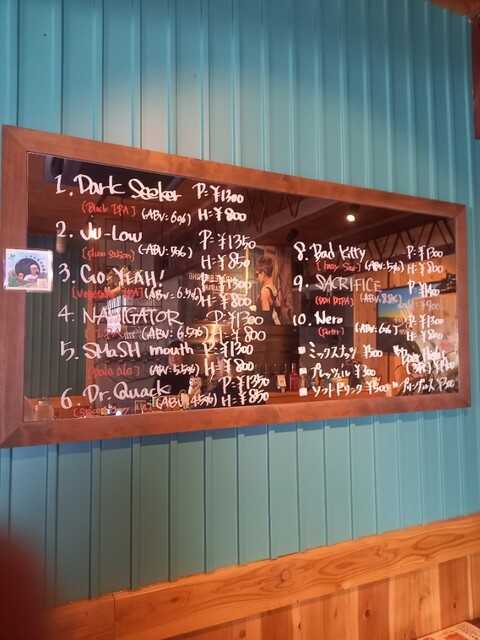 1. Dark Seeker P=¥1300
[Black IPA] (ABV: 6.0%) H=¥800
2. Ju-Low P=¥1350
[plum saison] H=¥850
3. Go YEAH! P=¥1300
H=¥800
4. NAVIGATOR P=¥1300
(ABV: 6.5%) H=¥800
5. SMaSH mouth P=¥1300
[pale ale] (ABV: 5.5%) H=¥800
6. Dr. Quack P=¥1350
(ABV: 4.5%) H=¥850
8. Bad Kitty P=¥1300
(ABV: 5%) H=¥800
9. SACRIFICE
[DDH DIPA] (ABV: 8.8%)
10. Nero P=¥1300
H=¥800
ミックスナッツ ¥500
プレッツェル ¥300
ソフトドリンク ¥500